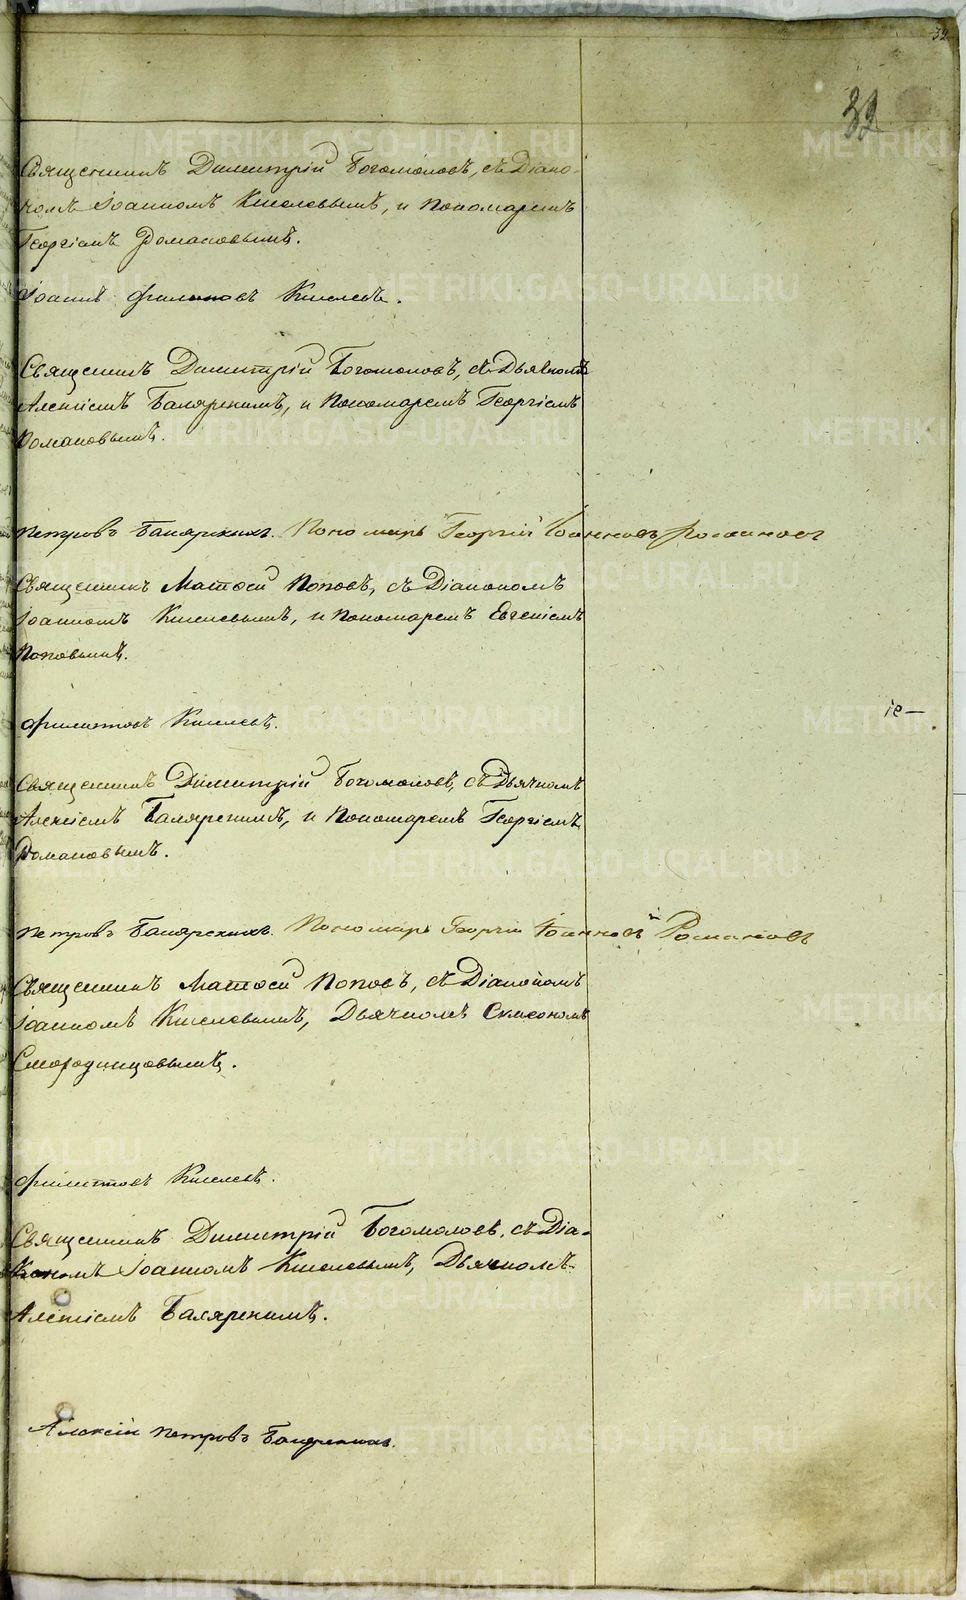 32
32
Священникъ Димитрій Богомоловъ, съ Діако-
номъ Іоанномъ Киселевымъ, и Пономаремъ
Георгіемъ Романовымъ.
Іоаннъ Филиповъ Киселевъ.
Священникъ Димитрій Богомоловъ, съ Дьячкомъ
Алексіемъ Баляренимъ, и Пономаремъ Георгіемъ
Романовымъ.
Петровъ Пономарь Георгій Іоанновъ Романовъ
Священникъ Матѳей Поповъ, съ Діакономъ
Іоанномъ Киселевымъ, и Пономаремъ Евгеніемъ
Поповымъ.
Филиповъ Киселевъ.
Священникъ Димитрій Богомоловъ, съ Дьячкомъ
Алексіемъ Баляренимъ, и Пономаремъ Георгіемъ
Романовымъ.
Петровъ Пономарь Георгій Іоанновъ Романовъ
Священникъ Матѳей Поповъ, съ Діакономъ
Іоанномъ Киселевымъ, Дьячкомъ Симеономъ
Смородинцовымъ.
Филиповъ Киселевъ.
Священникъ Димитрій Богомоловъ, съ Діа-
кономъ Іоанномъ Киселевымъ, Дьячкомъ
Алексіемъ Баляренимъ.
Алексій Петровъ
METRIKI.GASO-URAL.RU